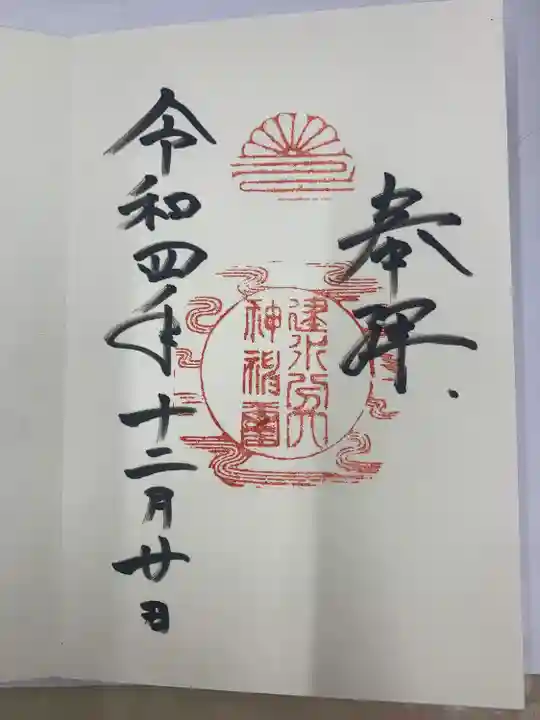 奉拝
建水分
神社
令和四年十二月廿日